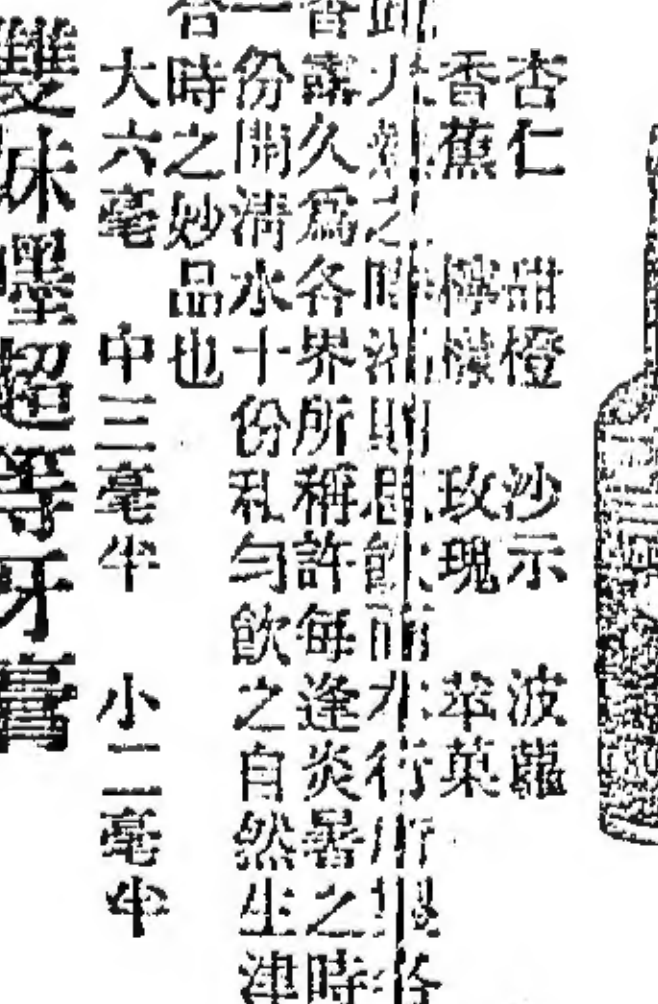 杏仁　甜橙　沙示　波蘿
香蕉　檸檬　玫瑰　苹菓
香露久爲各界所稱許每逢炎暑之時
一份開清水十份乱勻飲之自然生津
合時之妙品也
大六毫　中三毫半　小二毫半
雙妹嚜超等牙膏